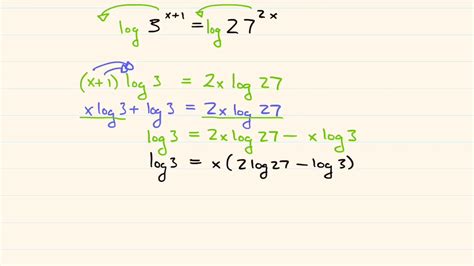 log 3^(x+1) = log 27^(2x)
(x+1) log 3 = 2x log 27
x log 3 + log 3 = 2x log 27
log 3 = 2x log 27 − x log 3
log 3 = x ( 2 log 27 − log 3 )